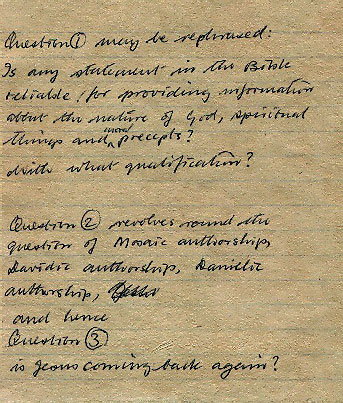 Question ① may be rephrased:
Is any statement in the Bible
reliable for providing information
about the nature of God, spiritual
things and moral precepts?
With what qualification?
Question ② revolves round the
question of Mosaic authorship,
Davidic authorship, Danielic
authorship,
and hence
Question ③
is Jesus coming back again?